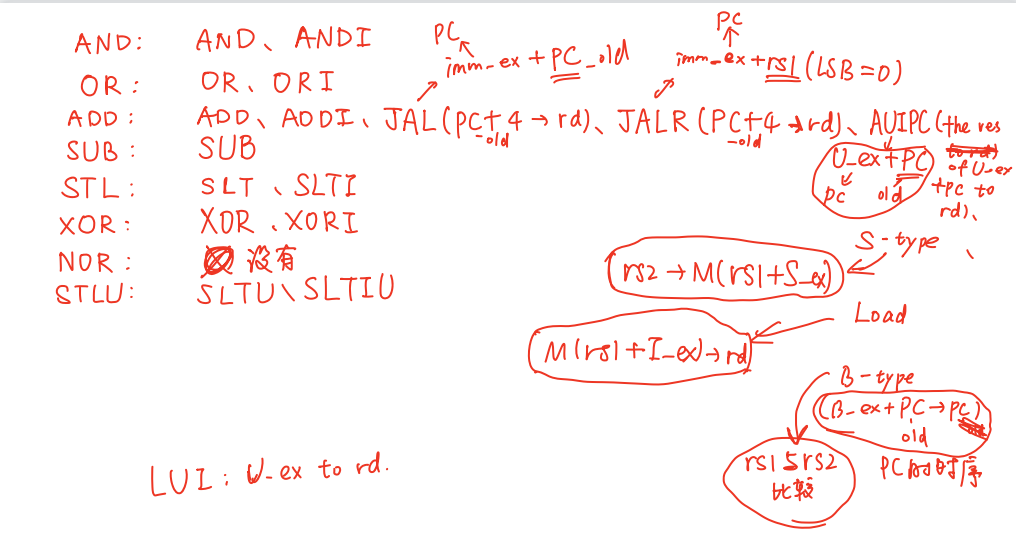 AND: AND、ANDI
OR: OR、ORI
PC
imm_ex + PC_old
PC
imm_ex+rs1(LSB=0)
ADD: ADD、ADDI、JAL(PC+4→rd)、JALR(PC+4→rd)、AUIPC(the res
_old
_old
of U_ex
+pc to
rd)、
U_ex+PC
pc old
SUB: SUB
STL: SLT、SLTI
XOR: XOR、XORI
NOR: 没有
STLU: SLTU、SLTIU
S-type
rs2→M(rs1+S_ex)
Load
M(rs1+I_ex)→rd
B-type
(B_ex+PC→PC)
old
rs1与rs2
比较
PC的时序
LUI: U_ex to rd.